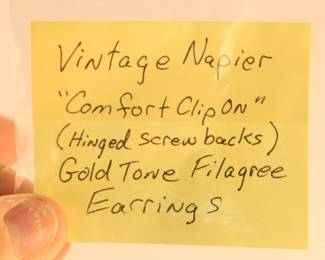 Vintage Napier
"Comfort Clip On"
(Hinged screw backs)
Gold Tone Filagree
Earrings